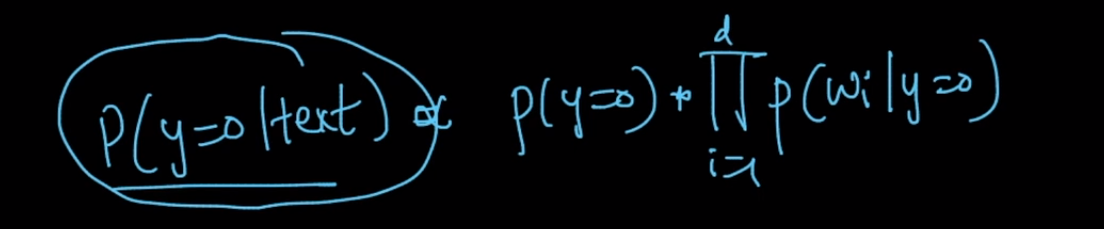 P(y=0|text) ∝ p(y=0) * ∏_{i=1}^{d} p(wi|y=0)